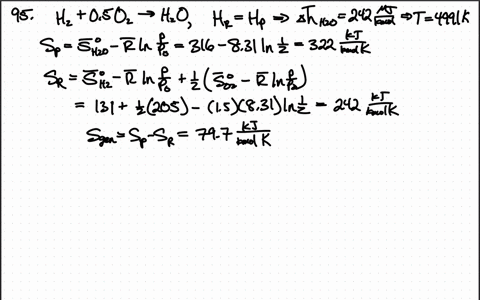 95. H₂ + 0.5O₂ → H₂O, H_R = H_P ⇒ Δh̄_H2O = 242 MJ/kmol ⇒ T = 4991K
S_P = S̄°_H2O − R̄ ln P/P₀ = 316 − 8.31 ln ½ = 322 kJ/kmol K
S_R = S̄°_H2 − R̄ ln P/P₀ + ½(S̄°_O2 − R̄ ln P/P₀)
= 131 + ½(205) − (1.5)(8.31) ln ½ = 242 kJ/kmol K
S_gen = S_P − S_R = 79.7 kJ/kmol K